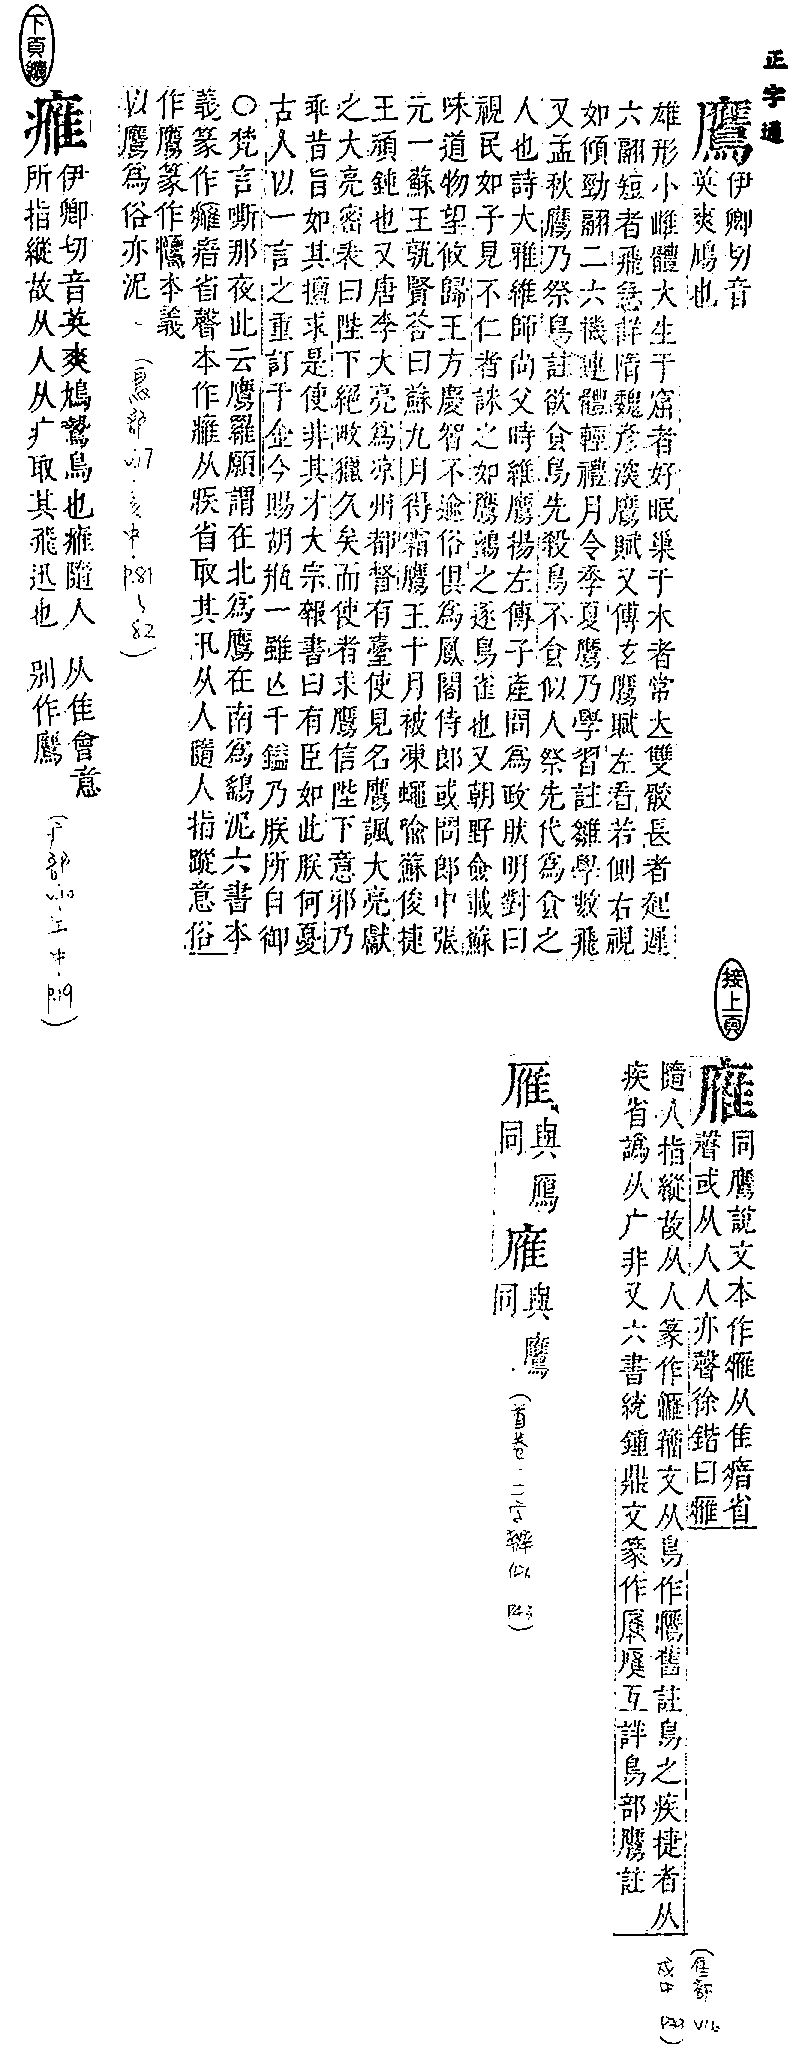 正字通
鷹
伊卿切音
英爽鳩也
雄形小雌體大生于窟者好眠巢于木者常立雙骹長者起遲
六翮短者飛急鮮隋魏彥深鷹賦又傅玄鷹賦左看若側右視
如傾勁翮二六機連體輕禮月令季夏鷹乃學習註雛學數飛
又孟秋鷹乃祭鳥註欲食鳥先殺鳥不食似人祭先代為食之
人也詩大雅維師尚父時維鷹揚左傳子產問為政肰明對曰
視民如子見不仁者誅之如鷹鸇之逐鳥雀也又朝野僉載蘇
味道物望攸歸王方慶智不逾俗俱為鳳閣侍郎或問郎中張
元一蘇王孰賢荅曰蘇九月得霜鷹王十月被凍蠅喩蘇俊捷
王頑鈍也又唐李大亮為凉州都督有臺使見名鷹諷大亮獻
之大亮密表曰陛下絕畋獵久矣而使者求鷹信陛下意邪乃
乖昔旨如其擅求是使非其才大宗報書曰有臣如此朕何憂
古人以一言之重訂于金今賜胡瓶一雖亾千鎰乃朕所自御
〇梵言嘶那夜此云鷹羅願謂在北為鷹在南為鷂泥六書本
義篆作癕瘖省聲本作癕从疾省取其汛从人隨人指蹤意俗
作鷹篆作𪇰本義
以鷹為俗亦泥
(鳥部v.17.亥中.p.81~82)
下頁續
癕
伊卿切音英爽鳩鷙鳥也癕隨人 从隹會意
所指縱故从人从疒取其飛迅也 别作鷹
(疒部v.10.午中.p.19)
接上頁
䧹
同鷹說文本作癕从隹瘖省
聲或从人人亦聲徐鍇曰癕
隨人指縱故从人篆作癕籀文从鳥作𪇰舊註鳥之疾捷者从
疾省譌从广非又六書統鍾鼎文篆作互詳鳥部鷹註
(隹部 v.16 戌中)
雁
與鴈
同
䧹
與鷹
同
(首卷.二字辨似 p.43)